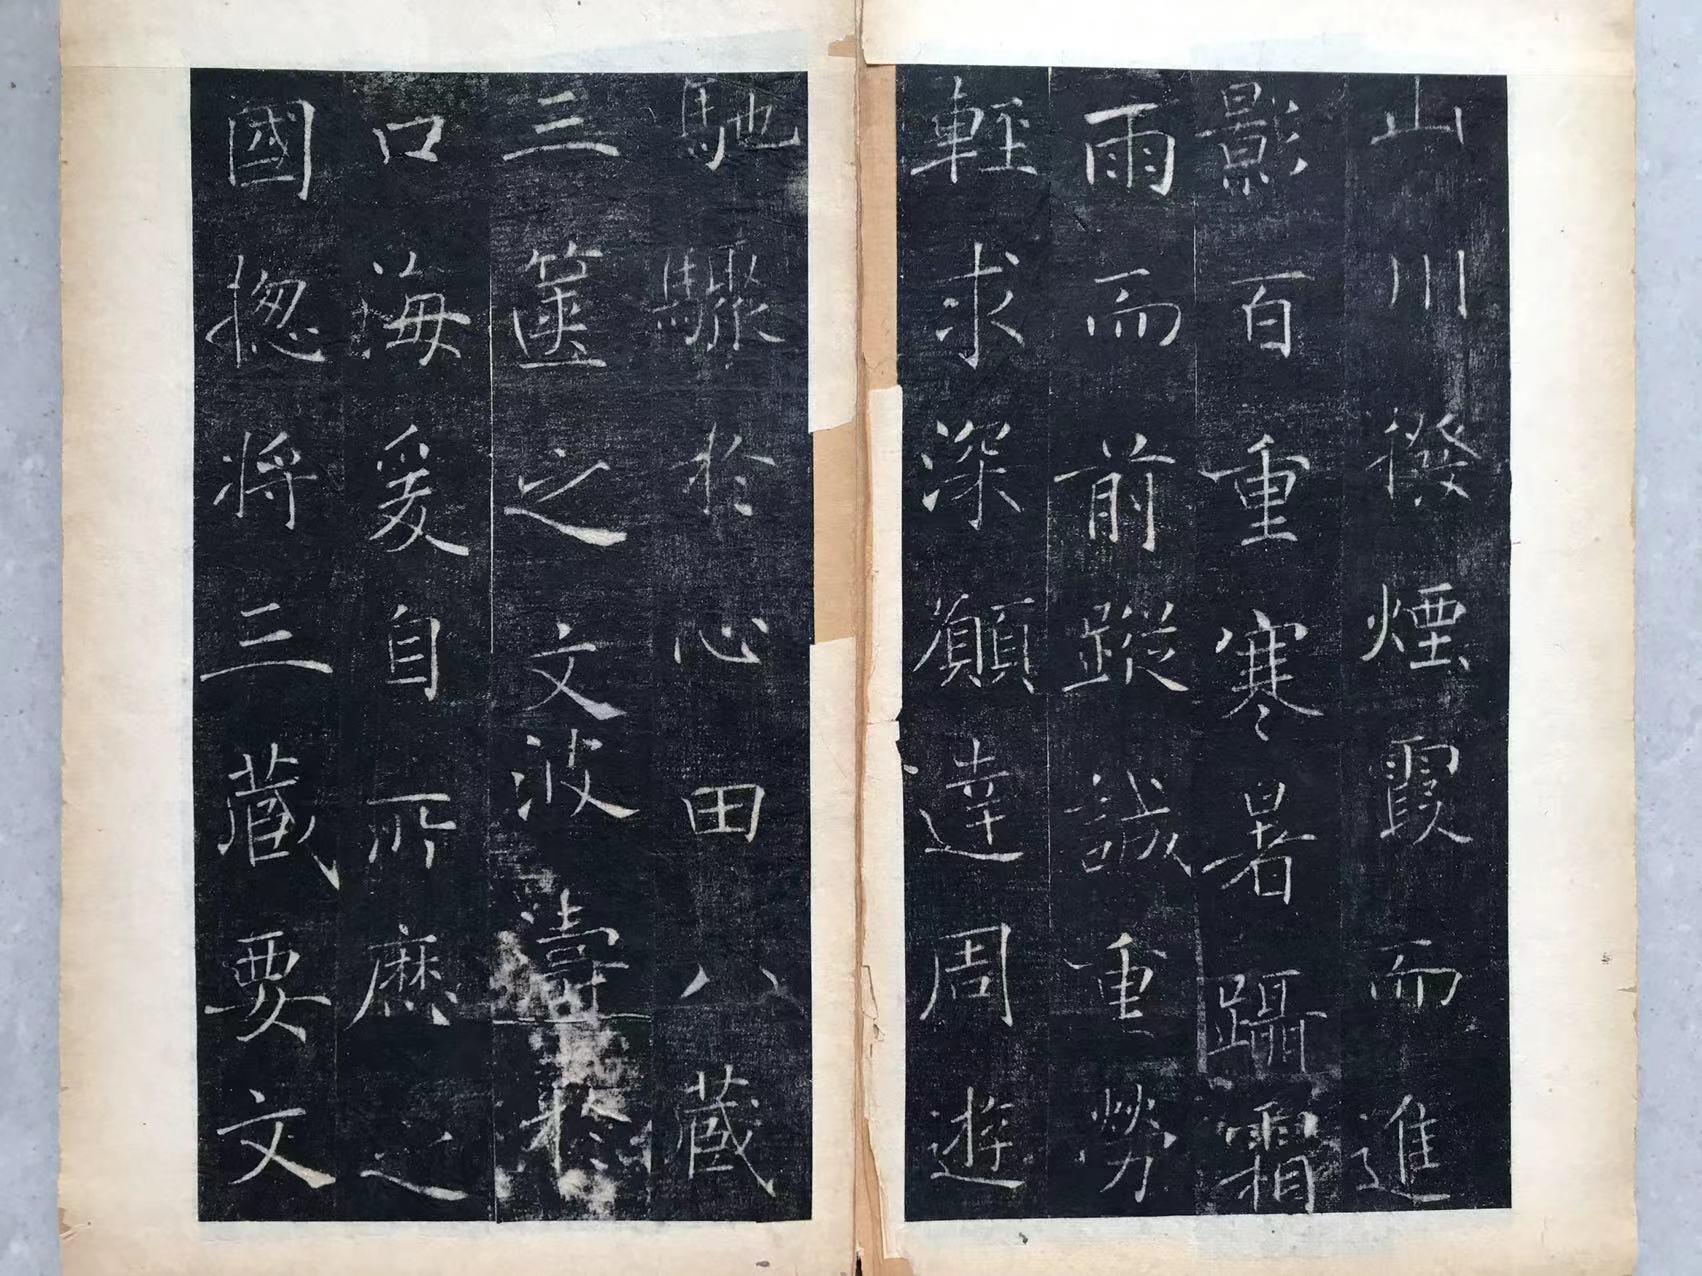 山川撥煙霞而進
影百重寒暑躡霜
雨而前蹤誠重勞
輕求深願達周遊
馳驟於心田八藏
三篋之文波濤於
口海爰自所歷之
國揔將三藏要文